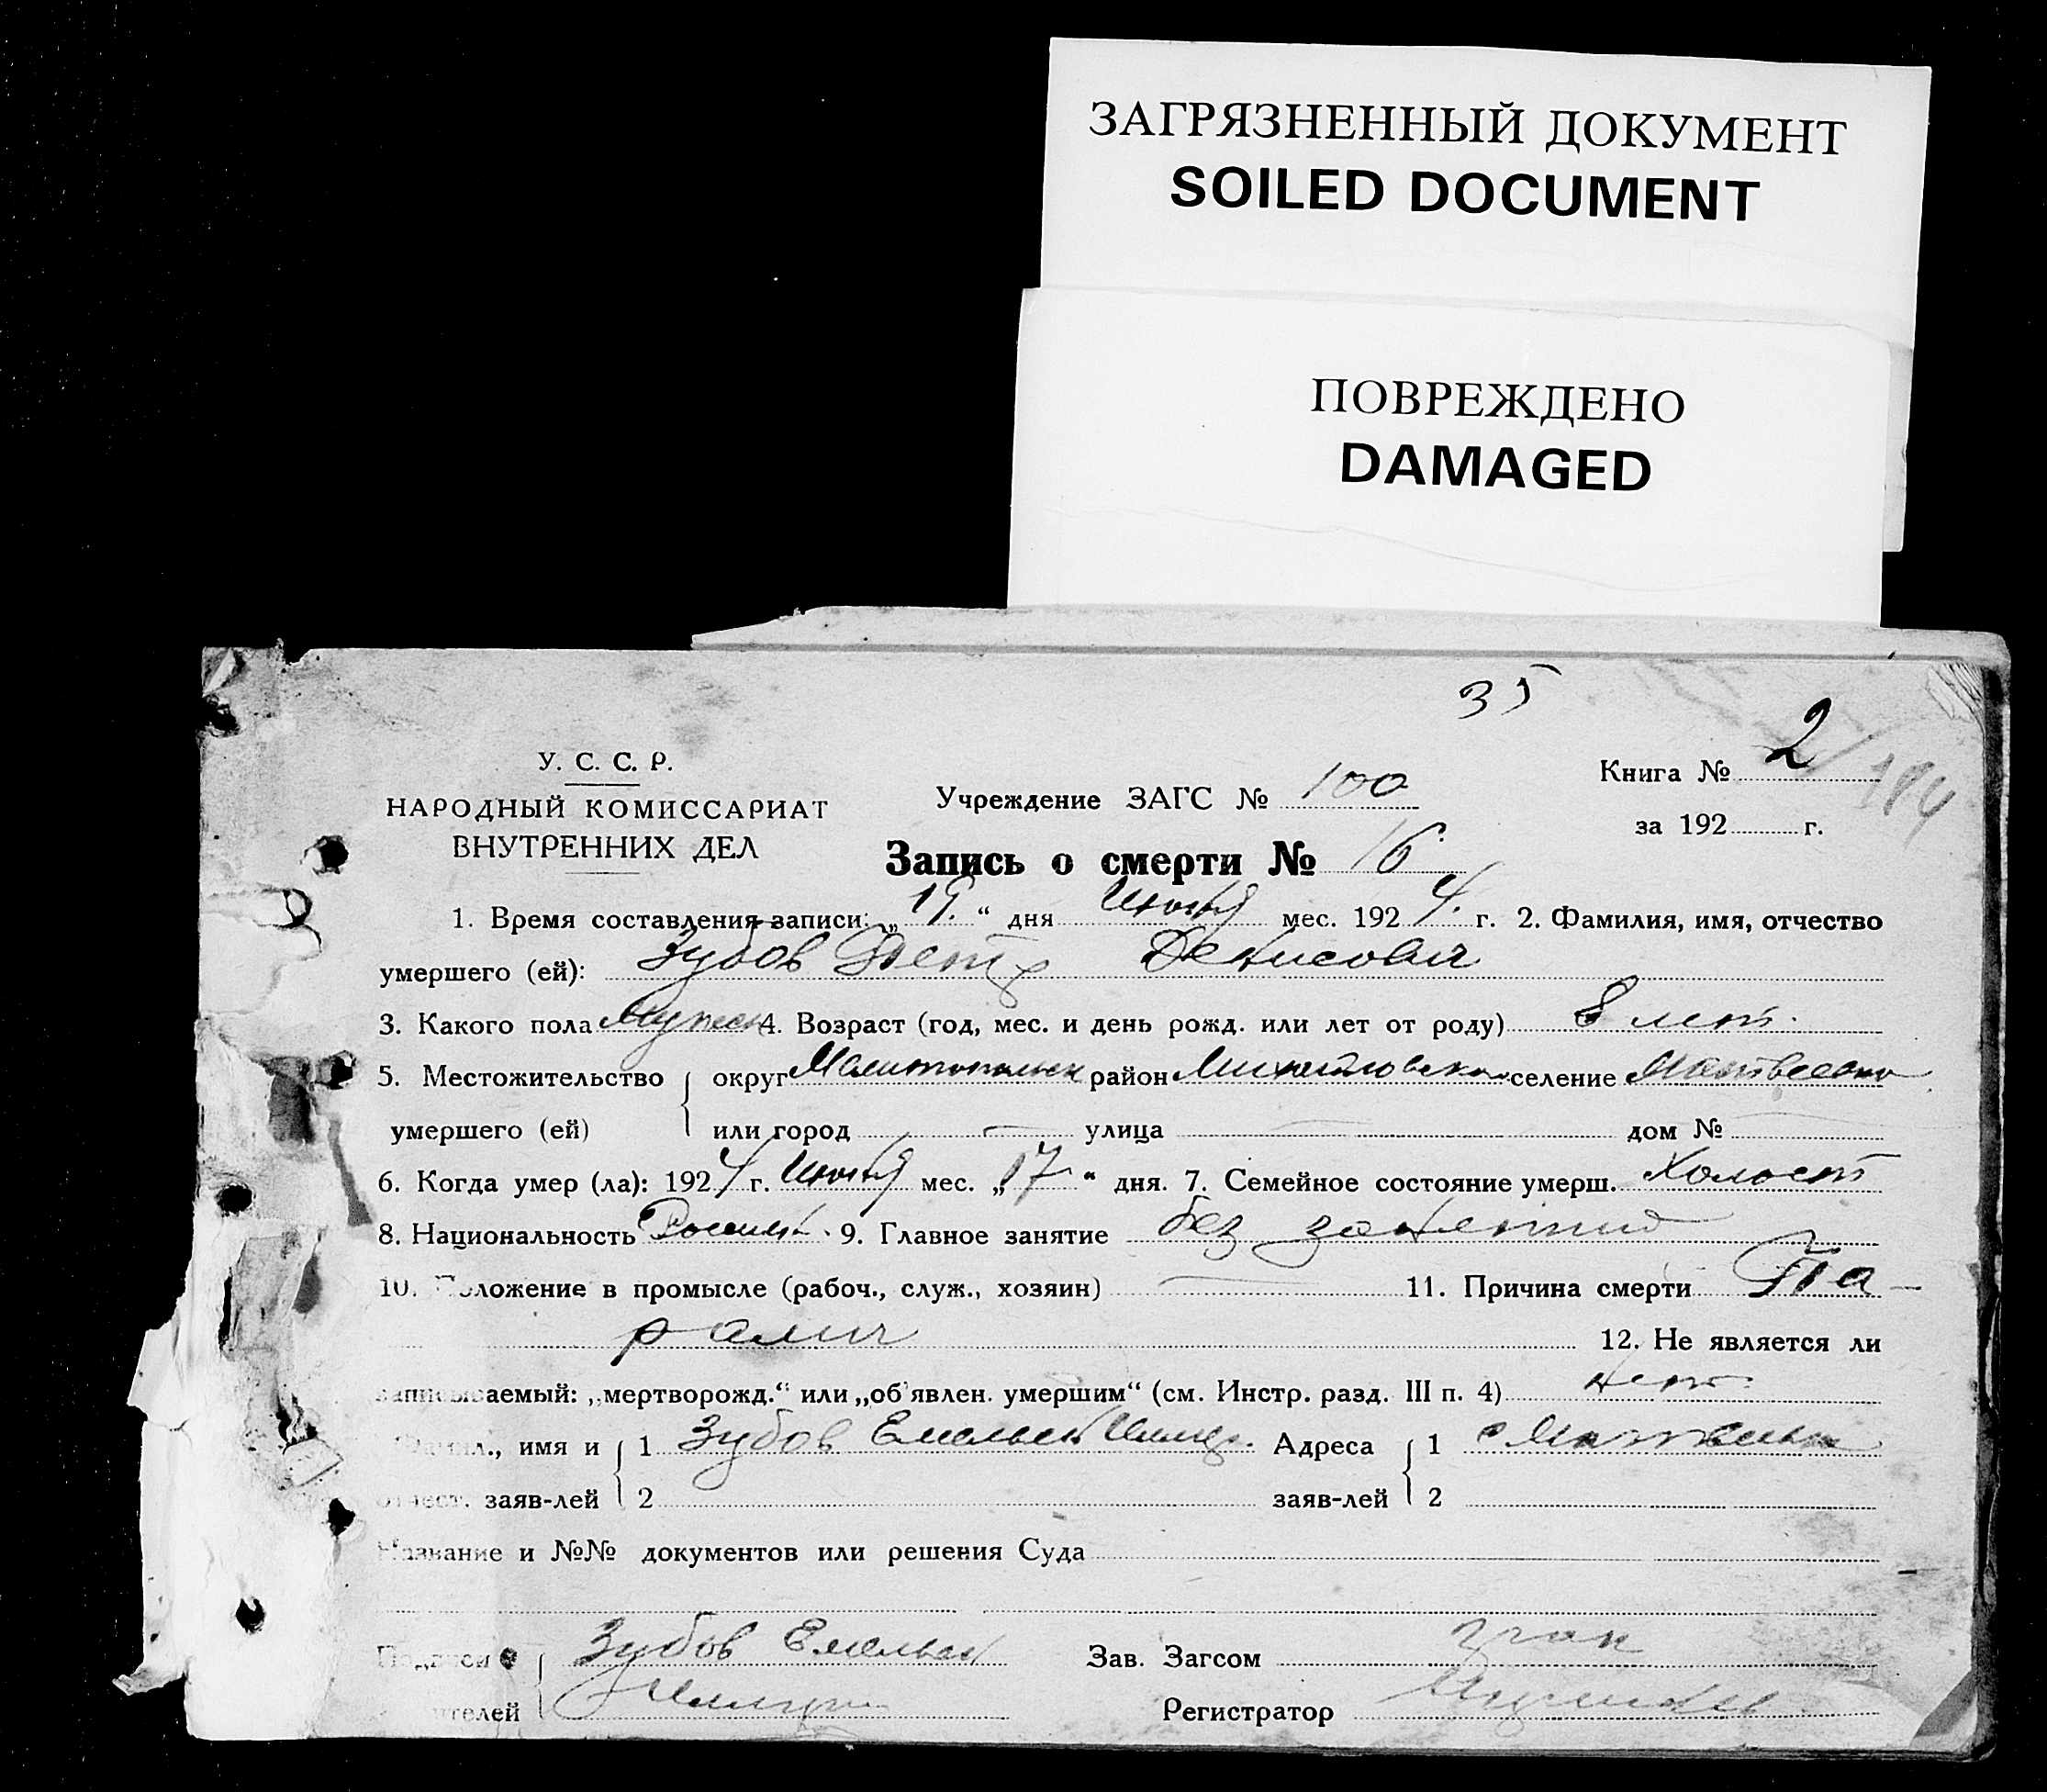 ЗАГРЯЗНЕННЫЙ ДОКУМЕНТ
SOILED DOCUMENT
ПОВРЕЖДЕНО
DAMAGED
35
У. С. С. Р.
НАРОДНЫЙ КОМИССАРИАТ
ВНУТРЕННИХ ДЕЛ
Учреждение ЗАГС № 100
Книга № 2
184
за 192 г.
Запись о смерти № 16
1. Время составления записи: „19.“ дня мес. 1924. г. 2. Фамилия, имя, отчество
умершего (ей): Зубов Петр Денисович
3. Какого пола Мужск 4. Возраст (год, мес. и день рожд. или лет от роду) 8 лет.
5. Местожительство округ Мелитопольск район Михайловско селение
умершего (ей) или город — улица — дом №
6. Когда умер (ла): 1924 г. мес. „17“ дня. 7. Семейное состояние умерш. Холост
8. Национальность 9. Главное занятие без
10. Положение в промысле (рабоч., служ., хозяин) — 11. Причина смерти Па-
ралич 12. Не является ли
записываемый: „мертворожд.“ или „об'явлен. умершим“ (см. Инстр. разд. III п. 4) нет.
Фамил., имя и 1 Зубов Емельян Адреса 1 с
отчест. заяв-лей 2 заяв-лей 2
Название и №№ документов или решения Суда
Подписи Зубов Емельян Зав. Загсом
ителей Регистратор